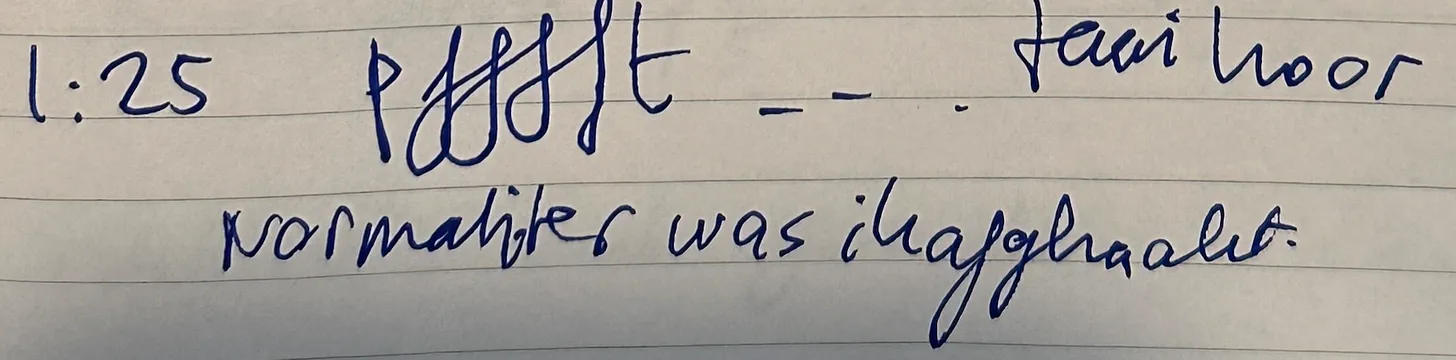 1:25 Pffffft _ _ . taai hoor
Normaliter was ik afgehaakt.